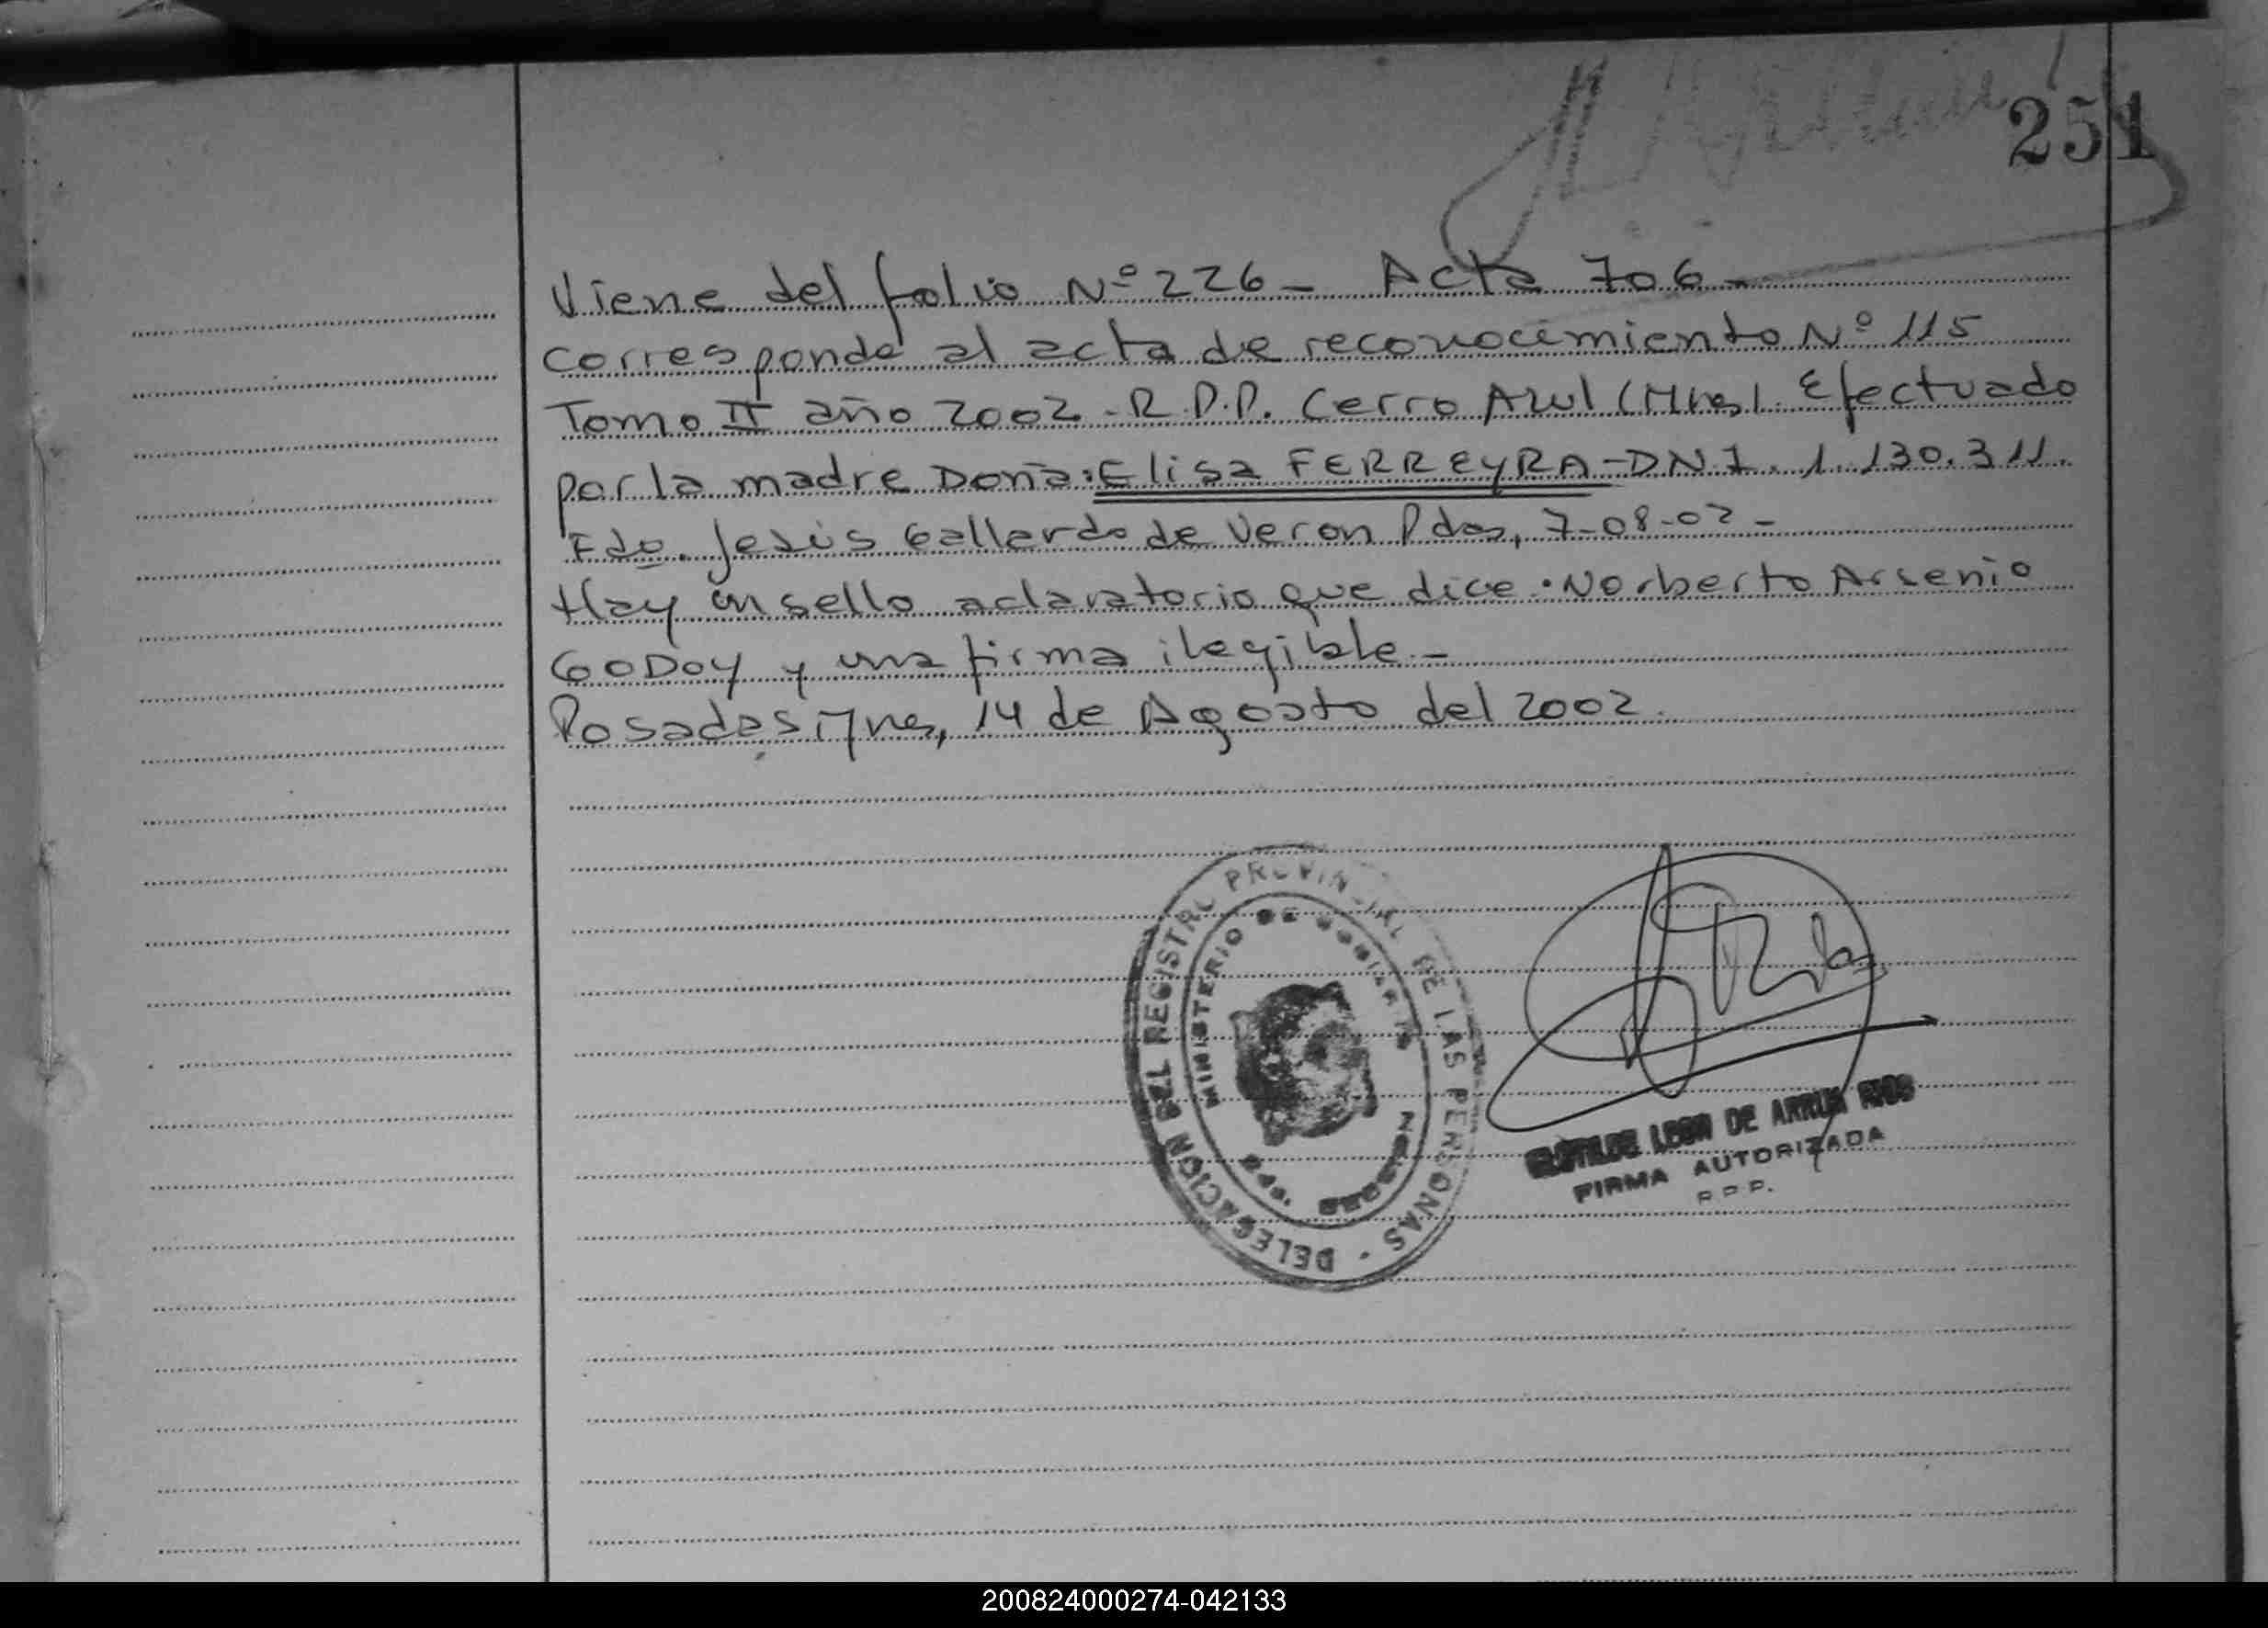 251
Viene del folio Nº 226 - Acta 706 -
corresponde al acta de reconocimiento Nº 115
Tomo II año 2002 - R.P.P. Cerro Azul (Mnes). Efectuado
por la madre Doña: Elisa FERREYRA - DNI. 1.130.311.
Fdo. Jesús Gallardo de Veron Pdas, 7-08-02 -
Hay un sello aclaratorio que dice: Norberto Arsenio
GODOY y una firma ilegible -
Posadas, Mnes, 14 de Agosto del 2002.
DELEGACION DEL REGISTRO PROVINCIAL DE LAS PERSONAS -
MINISTERIO DE GOBIERNO
MISIONES
CLOTILDE LEON DE
FIRMA AUTORIZADA
R.P.P.
200824000274-042133